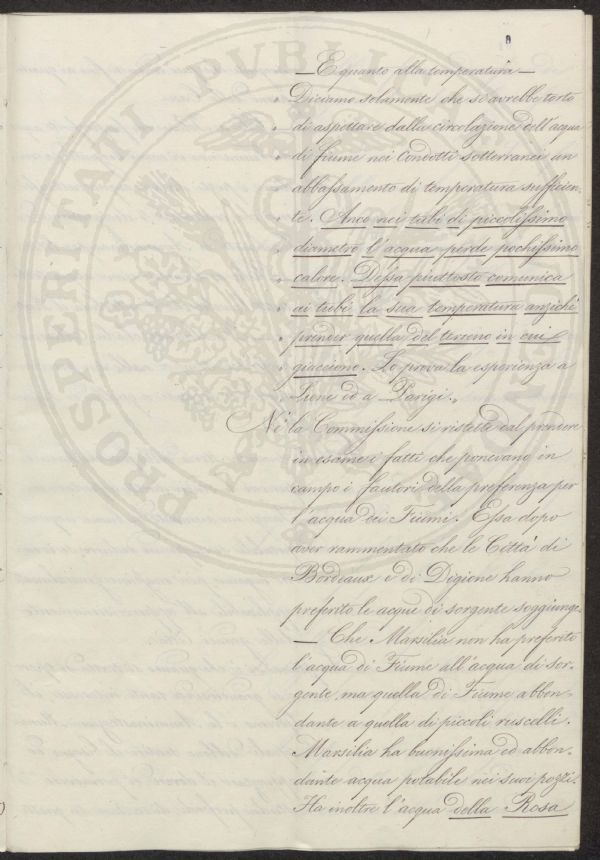 — E quanto alla temperatura —
Diciamo solamente che si avrebbe torto
" di aspettare dalla circolazione dell'acqua
" di fiume nei Condotti sotterranei un
" abbassamento di temperatura sufficien-
" te. Anco nei tubi di piccolissimo
" diametro l'acqua perde pochissimo
" calore. Dessa piuttosto comunica
" ai tubi la sua temperatura anzichè
" prender quella del terreno in cui
" giacciono. Lo prova la esperienza a
" Lione ed a Parigi. "
Nè la Commissione si ristette dal prendere
in esame i fatti che ponevano in
campo i fautori della preferenza per
l'acqua dei Fiumi. Essa dopo
aver rammentato che le Città di
Bordeaux e di Digione hanno
preferito le acque di sorgente soggiunge
— Che Marsilia non ha preferito
l'acqua di Fiume all'acqua di sor-
gente, ma quella di Fiume abbon-
dante a quella di piccoli ruscelli.
Marsilia ha buonissima ed abbon-
dante acqua potabile nei suoi pozzi.
Ha inoltre l'acqua della Rosa
PROSPERITATI PVBLI